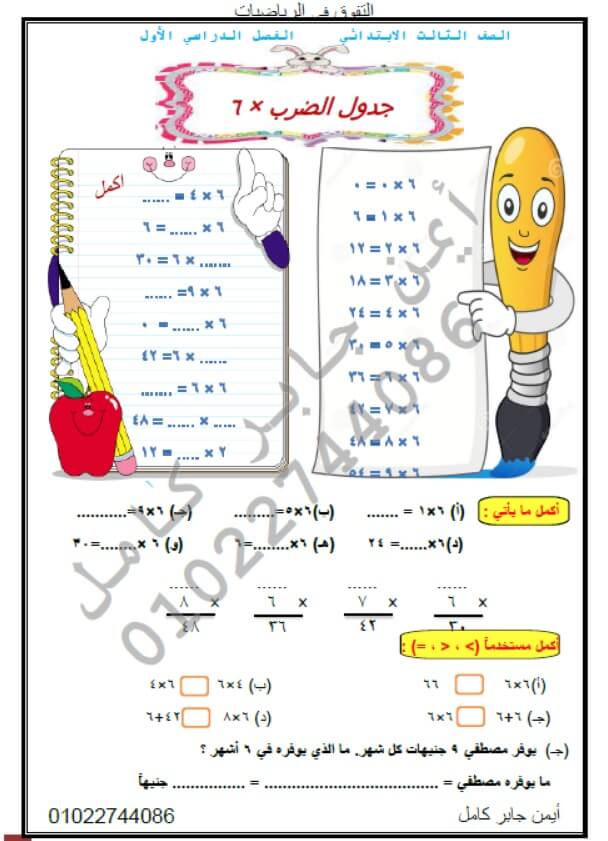 التفوق في الرياضيات
الصف الثالث الابتدائي الفصل الدراسي الأول
جدول الضرب × ٦
٦ × ٠ = ٠
٦ × ١ = ٦
٦ × ٢ = ١٢
٦ × ٣ = ١٨
٦ × ٤ = ٢٤
٦ × ٥ = ٣٠
٦ × ١ = ٣٦
٦ × ٧ = ٤٢
٦ × ٨ = ٤٨
٦ × ٩ = ٥٤
اكمل
٦ × ٤ = ......
٦ × ...... = ٦
....... × ٦ = ٣٠
٦ × ٩ = ......
٦ × ...... = ٠
...... × ٦ = ٤٢
٦ × ٦ = .......
..... × ...... = ٤٨
٢ × ..... = ١٢
أكمل ما يأتي : (أ) ٦×١ = ....... (ب) ٦×٥=......... (جـ) ٦×٩=...........
(د) ٦×......= ٢٤ (هـ) ٦×........=٦ (و) ٦ ×........=٣٠
...... ...... ...... ......
× ٦ × ٧ × ٦ × ٨
٣٠ ٤٢ ٣٦ ٤٨
أكمل مستخدماً (> ، < ، =) :
(أ) ٦×٦ ٦٦ (ب) ٤×٦ ٦×٤
(جـ) ٦+٦ ٦×٦ (د) ٦×٨ ٤٢+٦
(جـ) يوفر مصطفي ٩ جنيهات كل شهر. ما الذي يوفره في ٦ أشهر ؟
ما يوفره مصطفي = ....................................... = ................ جنيهاً
أيمن جابر كامل 01022744086
أيمن جابر كامل
01022744086